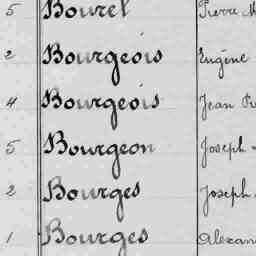 5 Bourel Pierre
2 Bourgeois Eugène
4 Bourgeois Jean
5 Bourgeon Joseph
2 Bourges Joseph
1 Bourges